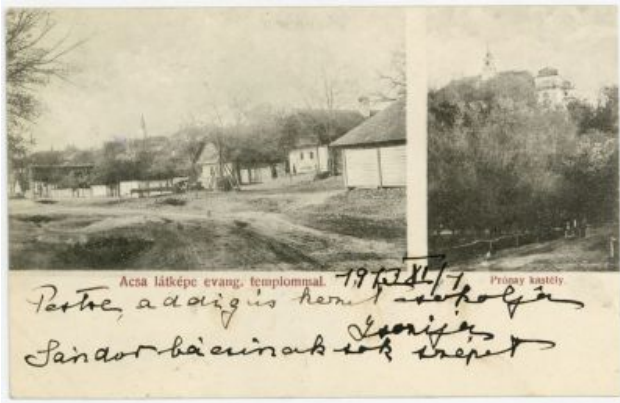 Acsa látképe evang. templommal.
Prónay kastély
Pestre, addig is kezet csókolja
Sándor bácsinak sok szépet